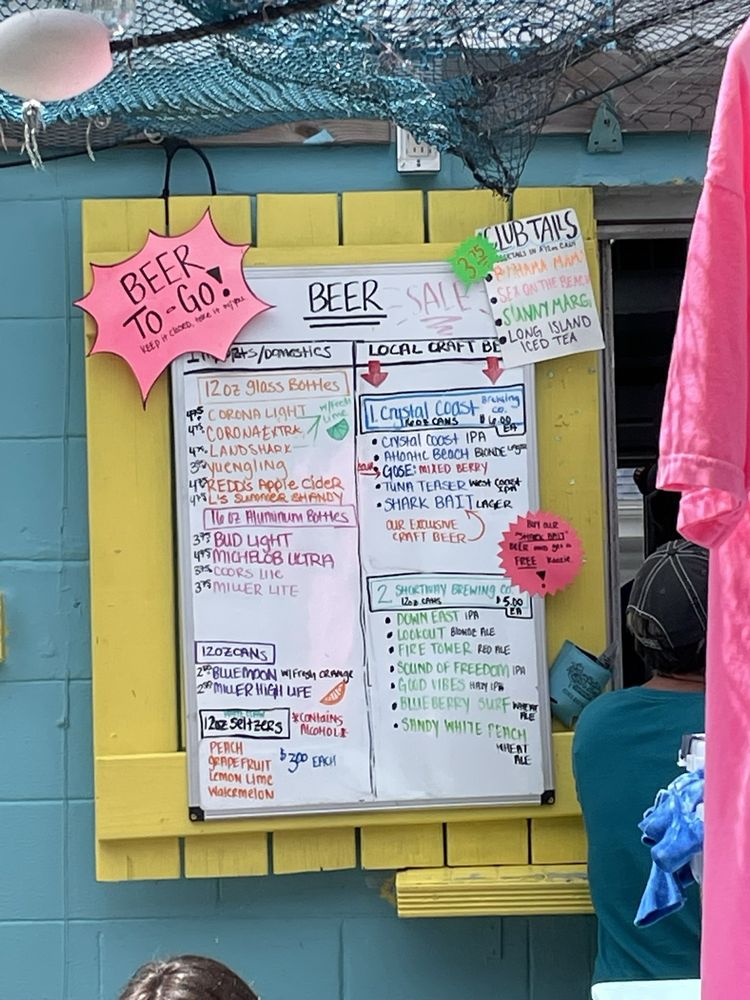 BEER
TO-GO!
KEEP it CLOSED, take it w/ you
CLUB TAILS
COCKTAILS IN A 12oz CAN
3.75
BAHAMA MAMA
SEX ON THE BEACH
SUNNY MARG
LONG ISLAND
ICED TEA
BEER SALE
IMPORTS/DOMESTICS
12oz Glass Bottles
CORONA LIGHT
CORONA EXTRA
w/Fresh
Lime
LANDSHARK
YUENGLING
REDD'S Apple CiDER
L's SUMMER SHANDY
16oz Aluminum Bottles
3.75 BUD LIGHT
4.75 MICHELOB ULTRA
3.75 COORS LITE
3.75 MILLER LITE
12oz CANS
BLUE MOON w/Fresh ORANGE
MILLER HIGH LIFE
12oz SELTZERS
*CONTAINS
ALCOHOL*
PEACH
GRAPEFRUIT
LEMON LIME
WATERMELON
$3.00 EACH
LOCAL CRAFT BE
1. Crystal Coast Brewing Co.
16oz CANS $6.00 EA
• CRYSTAL COAST IPA
• Atlantic Beach BLONDE Lager
GOSE: MIXED BERRY
• TUNA TEASER West Coast IPA
• SHARK BAIT LAGER
OUR EXCLUSIVE
CRAFT BEER
BUY OUR
"SHARK BAIT"
BEER and get a
FREE Koozie
!
2 SHORTWAY BREWING CO.
12oz CANS $5.00 EA
• DOWN EAST IPA
• LOOKOUT BLONDE ALE
• FIRE TOWER RED ALE
• SOUND OF FREEDOM IPA
• GOOD VIBES HAZY IPA
• BLUEBERRY SURF WHEAT ALE
• SANDY WHITE PEACH
WHEAT
ALE